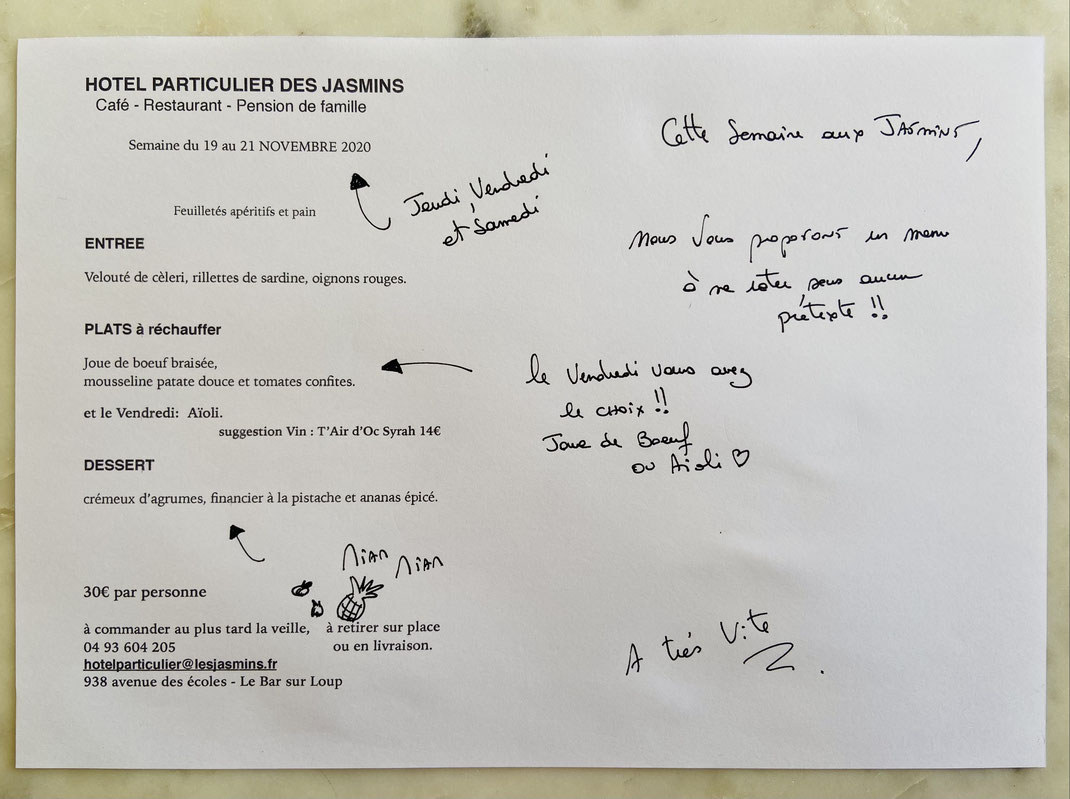 HOTEL PARTICULIER DES JASMINS
Café - Restaurant - Pension de famille
Semaine du 19 au 21 NOVEMBRE 2020
Jeudi, Vendredi
et Samedi
Feuilletés apéritifs et pain
ENTREE
Velouté de cèleri, rillettes de sardine, oignons rouges.
PLATS à réchauffer
Joue de boeuf braisée,
mousseline patate douce et tomates confites.
et le Vendredi: Aïoli.
suggestion Vin : T'Air d'Oc Syrah 14€
DESSERT
crémeux d'agrumes, financier à la pistache et ananas épicé.
Miam Miam
30€ par personne
à commander au plus tard la veille, à retirer sur place
04 93 604 205 ou en livraison.
hotelparticulier@lesjasmins.fr
938 avenue des écoles - Le Bar sur Loup
Cette Semaine aux JASMINS,
Nous Vous proposons un menu
à ne rater sous aucun
prétexte !!
le Vendredi vous avez
le CHOIX !!
Joue de Boeuf
ou Aïoli ♡
A très Vite